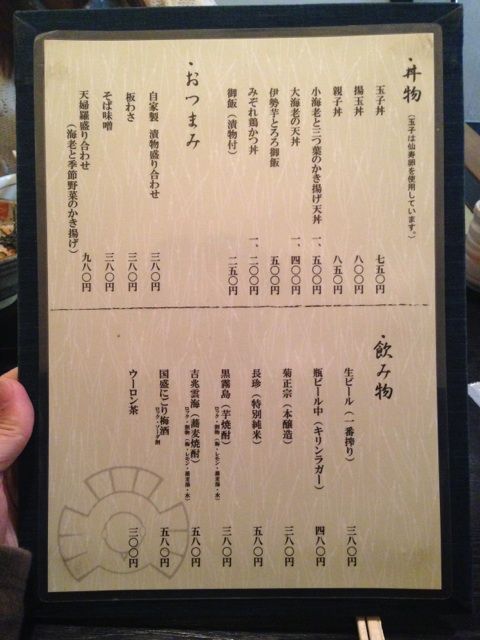 ・丼物（玉子は仙寿卵を使用しています。）
玉子丼 七五〇円
揚玉丼 八〇〇円
親子丼 八五〇円
小海老と三つ葉のかき揚げ天丼 一、五〇〇円
大海老の天丼 一、四〇〇円
伊勢芋とろろ御飯 五〇〇円
みぞれ鶏かつ丼 一、二〇〇円
御飯（漬物付） 二五〇円
・おつまみ
自家製 漬物盛り合わせ 三八〇円
板わさ 三八〇円
そば味噌 三八〇円
天婦羅盛り合わせ（海老と季節野菜のかき揚げ） 九八〇円
・飲み物
生ビール（一番搾り） 三八〇円
瓶ビール中（キリンラガー） 四八〇円
菊正宗（本醸造） 三八〇円
長珍（特別純米） 五八〇円
黒霧島（芋焼酎） 三八〇円
ロック・割物（梅・レモン・蕎麦湯・水）
吉兆雲海（蕎麦焼酎） 五八〇円
ロック・割物（梅・レモン・蕎麦湯・水）
国盛にごり梅酒 五八〇円
ロック・ソーダ割
ウーロン茶 三〇〇円